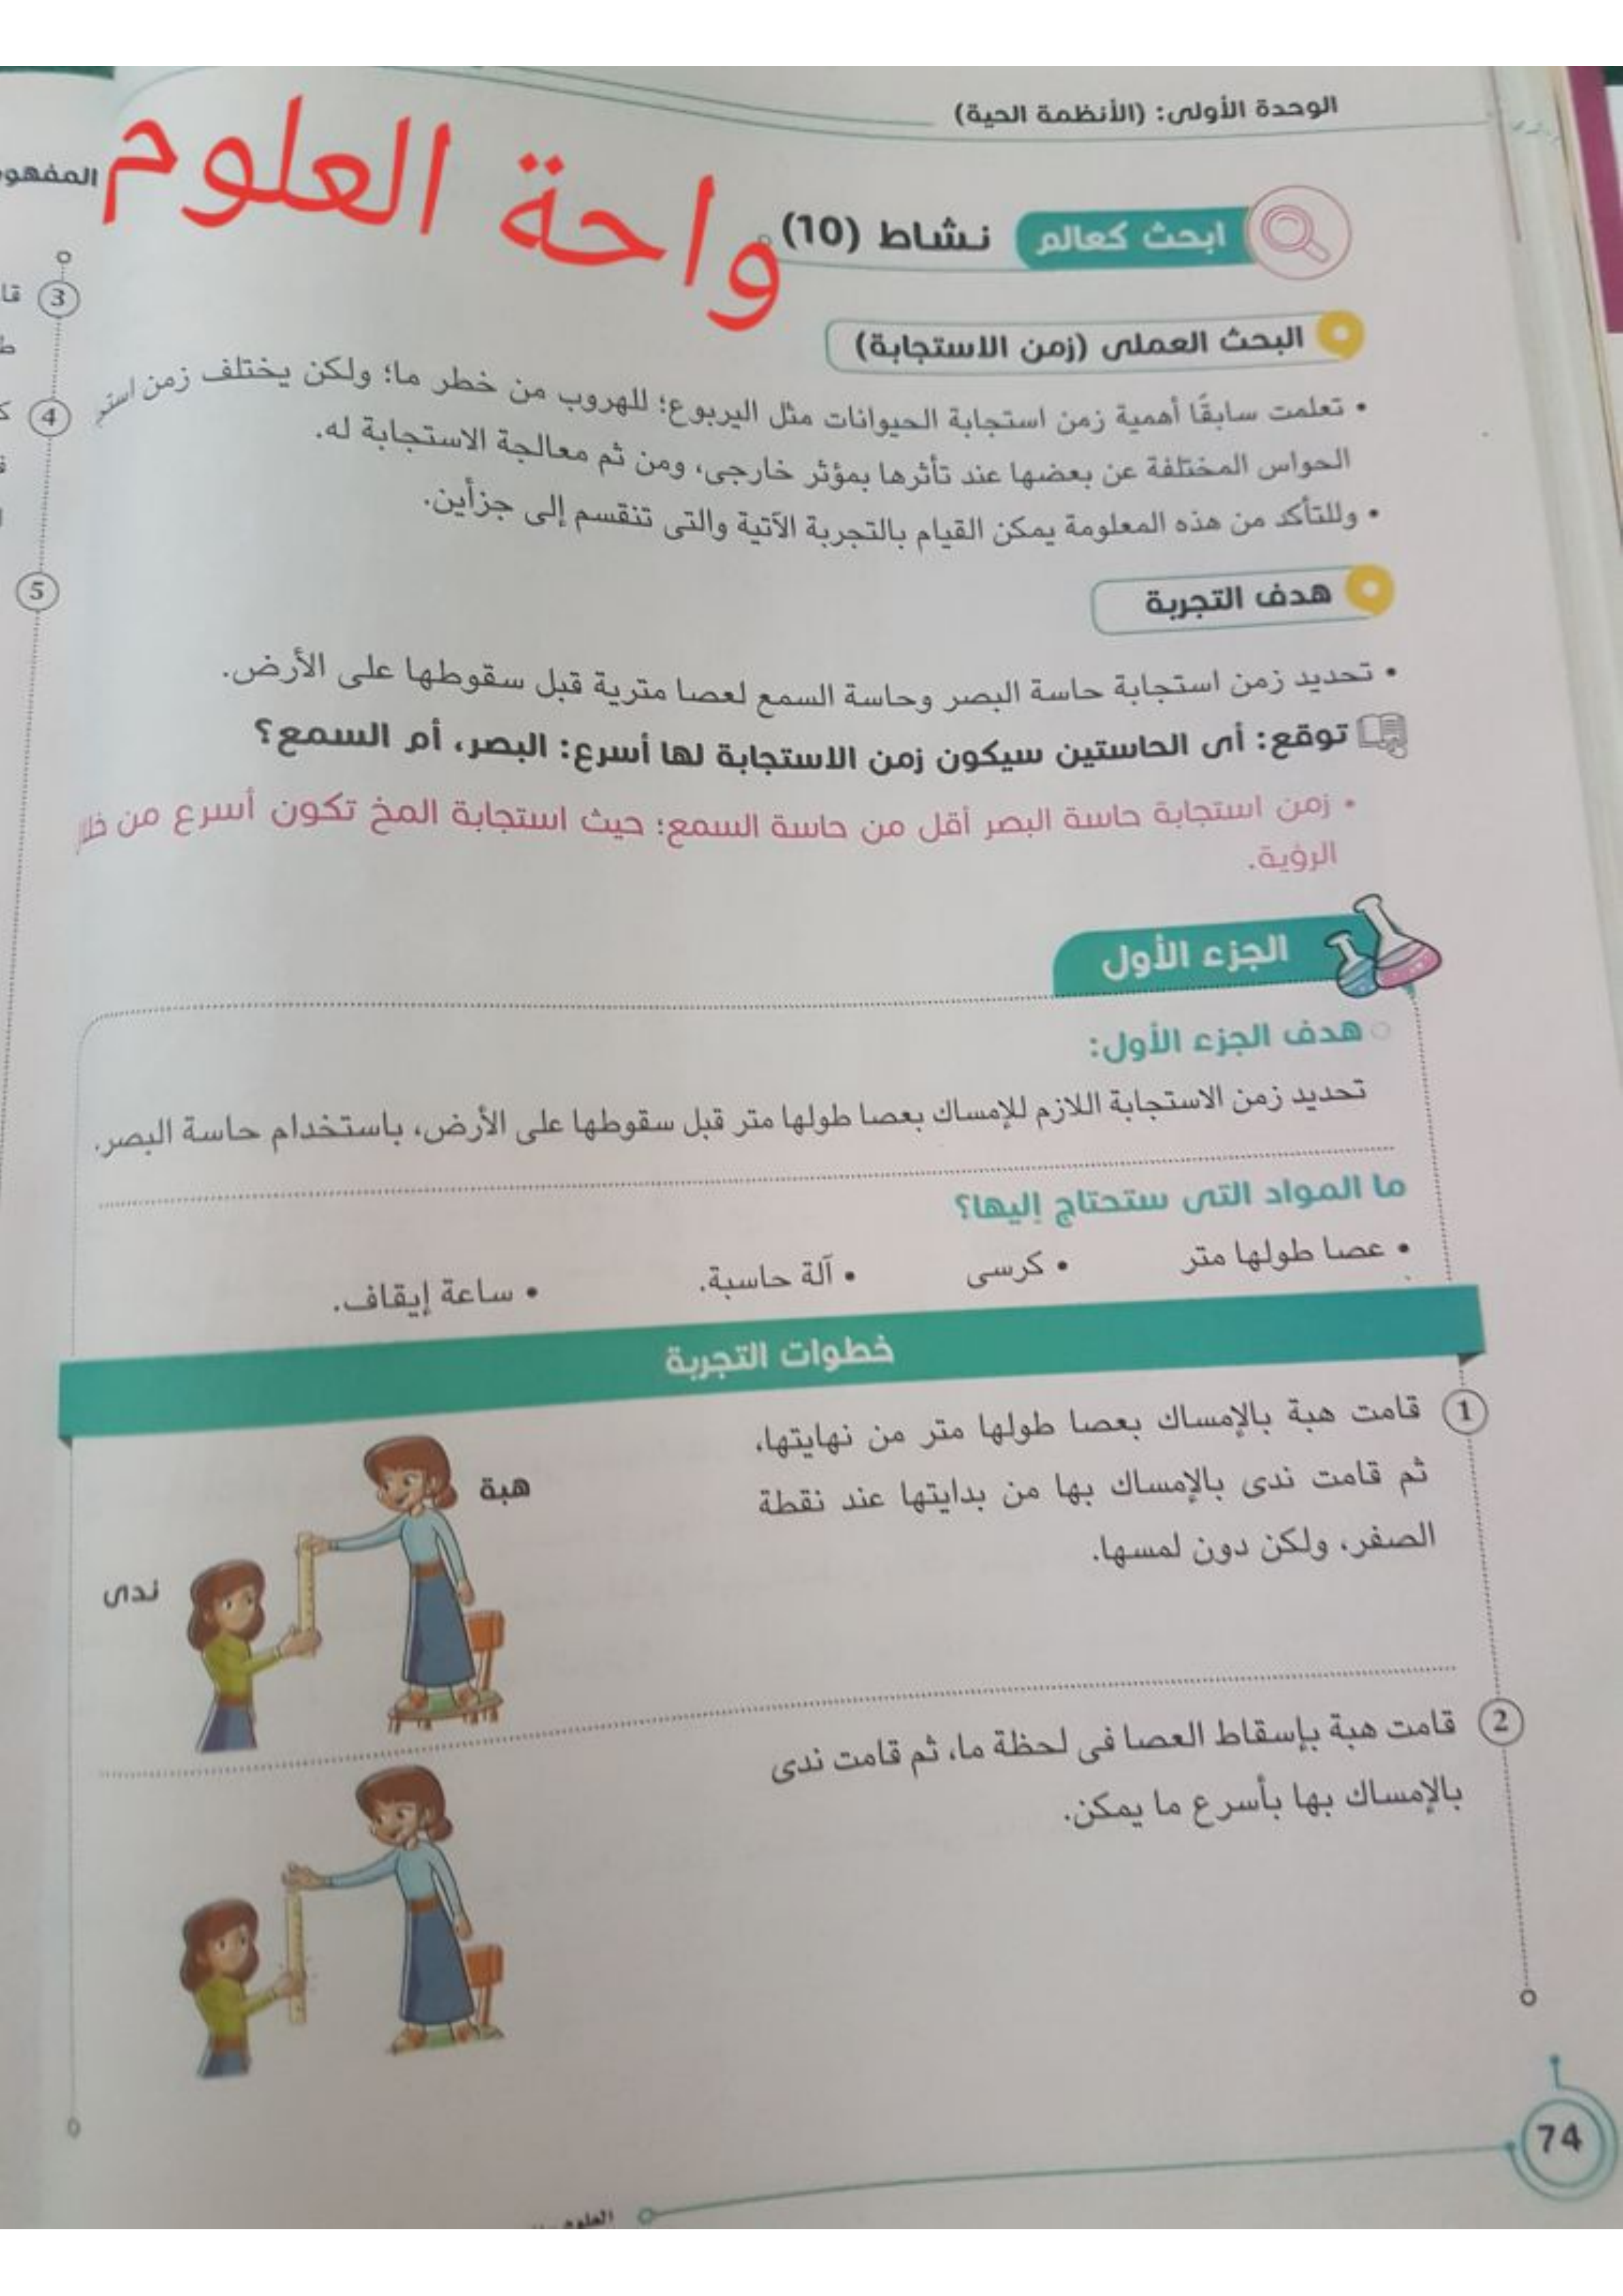 الوحدة الأولى: (الأنظمة الحية)
واحة العلوم
ابحث كعالم نشاط (10)
البحث العملى (زمن الاستجابة)
• تعلمت سابقًا أهمية زمن استجابة الحيوانات مثل اليربوع؛ للهروب من خطر ما؛ ولكن يختلف زمن
الحواس المختلفة عن بعضها عند تأثرها بمؤثر خارجى، ومن ثم معالجة الاستجابة له.
• وللتأكد من هذه المعلومة يمكن القيام بالتجربة الآتية والتى تنقسم إلى جزأين.
هدف التجربة
• تحديد زمن استجابة حاسة البصر وحاسة السمع لعصا مترية قبل سقوطها على الأرض.
توقع: أى الحاستين سيكون زمن الاستجابة لها أسرع: البصر، أم السمع؟
• زمن استجابة حاسة البصر أقل من حاسة السمع؛ حيث استجابة المخ تكون أسرع من
الرؤية.
الجزء الأول
هدف الجزء الأول:
تحديد زمن الاستجابة اللازم للإمساك بعصا طولها متر قبل سقوطها على الأرض، باستخدام حاسة البصر.
ما المواد التى ستحتاج إليها؟
• عصا طولها متر • كرسى • آلة حاسبة. • ساعة إيقاف.
خطوات التجربة
1 قامت هبة بالإمساك بعصا طولها متر من نهايتها،
ثم قامت ندى بالإمساك بها من بدايتها عند نقطة
الصفر، ولكن دون لمسها.
هبة
ندى
2 قامت هبة بإسقاط العصا فى لحظة ما، ثم قامت ندى
بالإمساك بها بأسرع ما يمكن.
74
العلوم
3
4
5